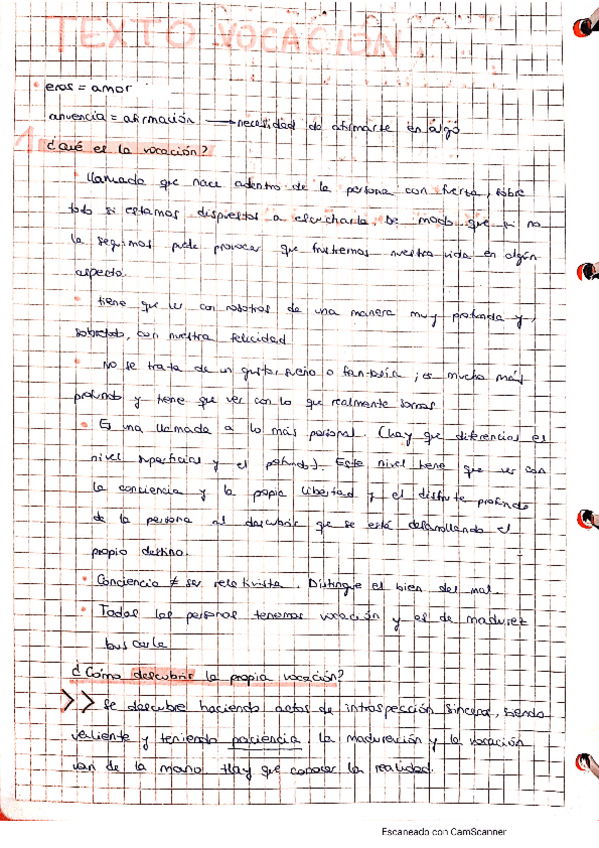 TEXTO VOCACIÓN.
eros = amor
anuencia = afirmación → necesidad de afirmarse en algo
¿Qué es la vocación?
llamada que nace adentro de la persona con fuerza, sobre
todo si estamos dispuestos a escucharla, de modo que si no
la seguimos puede provocar que frustremos nuestra vida en algún
aspecto.
tiene que ver con nosotros de una manera muy profunda y,
sobretodo, con nuestra felicidad
No se trata de un gusto, sueño o fantasía; es mucho más
profundo y tiene que ver con lo que realmente somos
Es una llamada a lo más personal. (hay que diferenciar el
nivel superficial y el profundo). Este nivel tiene que ver con
la conciencia y la propia libertad y el disfrute profundo
de la persona al descubrir que se está desarrollando el
propio destino.
Conciencia ≠ ser relativista. Distingue el bien del mal.
Todas las personas tenemos vocación y es de madurez
buscarla
¿Cómo descubrir la propia vocación?
>> Se descubre haciendo actos de introspección sincera, siendo
valiente y teniendo paciencia, la maduración y la vocación
van de la mano. Hay que conocer la realidad.
Escaneado con CamScanner